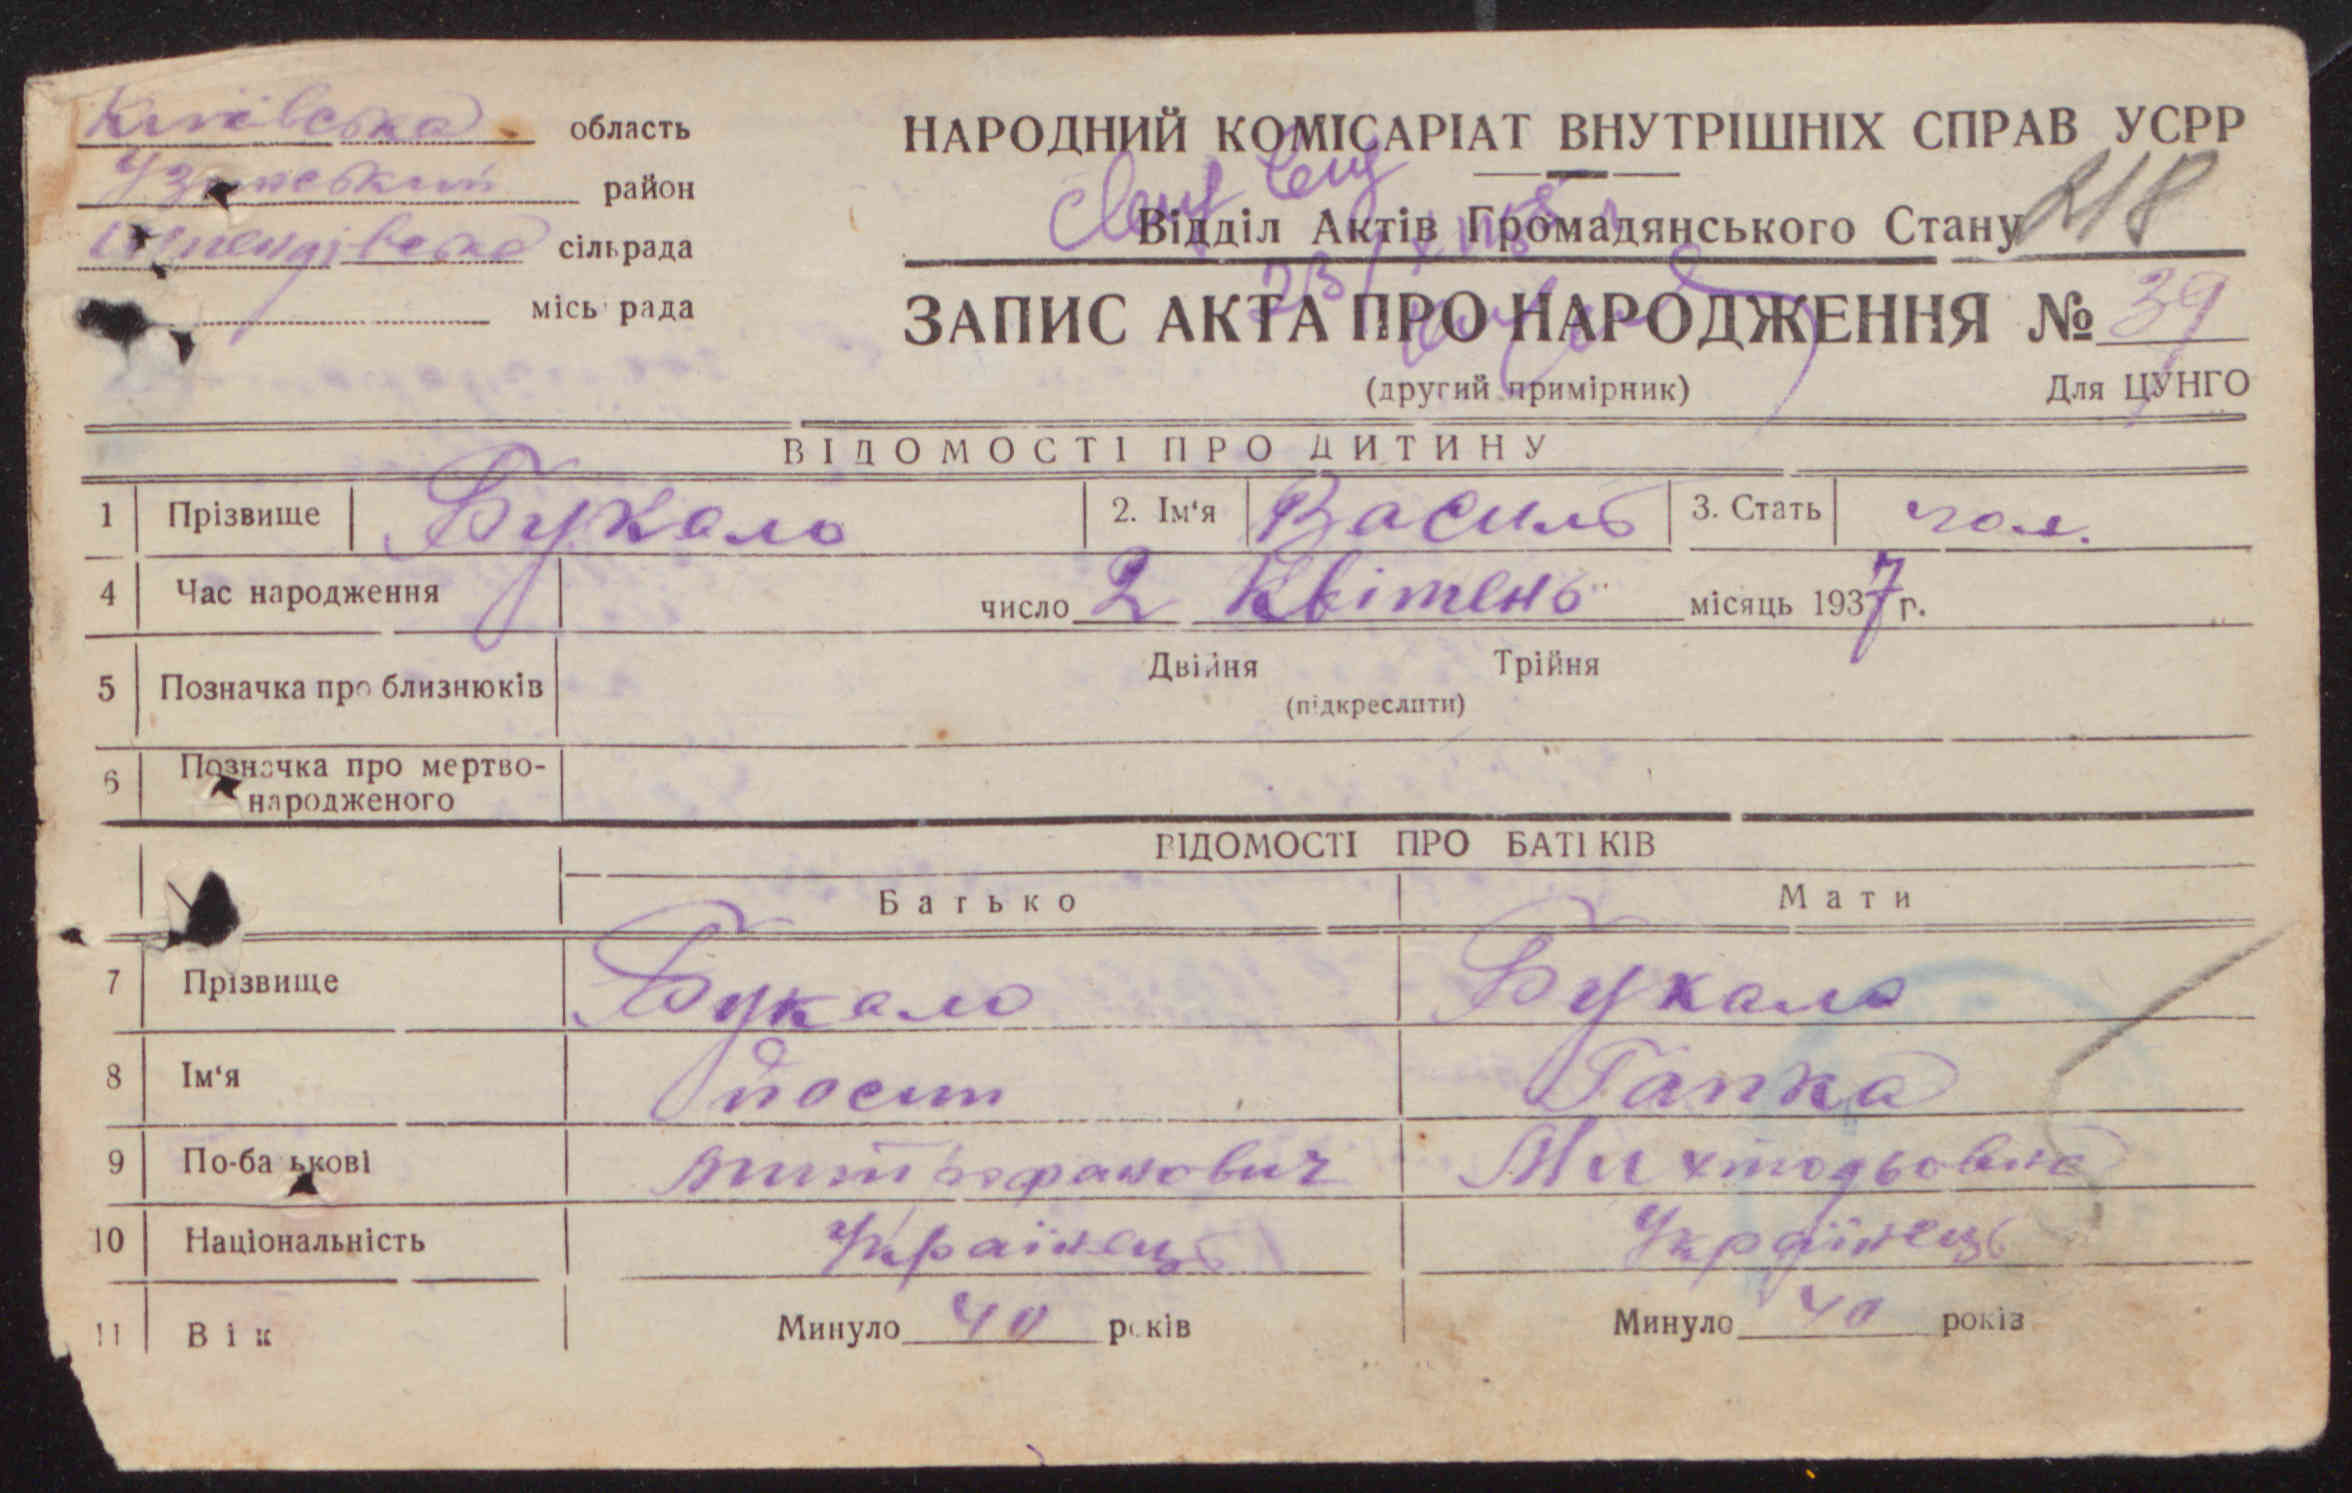 Київська область
Узинський район
сільрада
міськрада
НАРОДНИЙ КОМІСАРІАТ ВНУТРІШНІХ СПРАВ УСРР
218
Відділ Актів Громадянського Стану
ЗАПИС АКТА ПРО НАРОДЖЕННЯ № 39
(другий примірник) Для ЦУНГО
ВІДОМОСТІ ПРО ДИТИНУ
1 Прізвище Букало 2. Ім‘я Василь 3. Стать чол.
4 Час народження число 2 Квітень місяць 1937 р.
5 Позначка про близнюків Двійня Трійня
(підкреслити)
6 Позначка про мертво-
народженого
ВІДОМОСТІ ПРО БАТЬКІВ
Батько Мати
7 Прізвище Букало Букало
8 Ім‘я Йосип Гапка
9 По-батькові Митрофанович
10 Національність Українець Українець
11 Вік Минуло 40 років Минуло 40 років